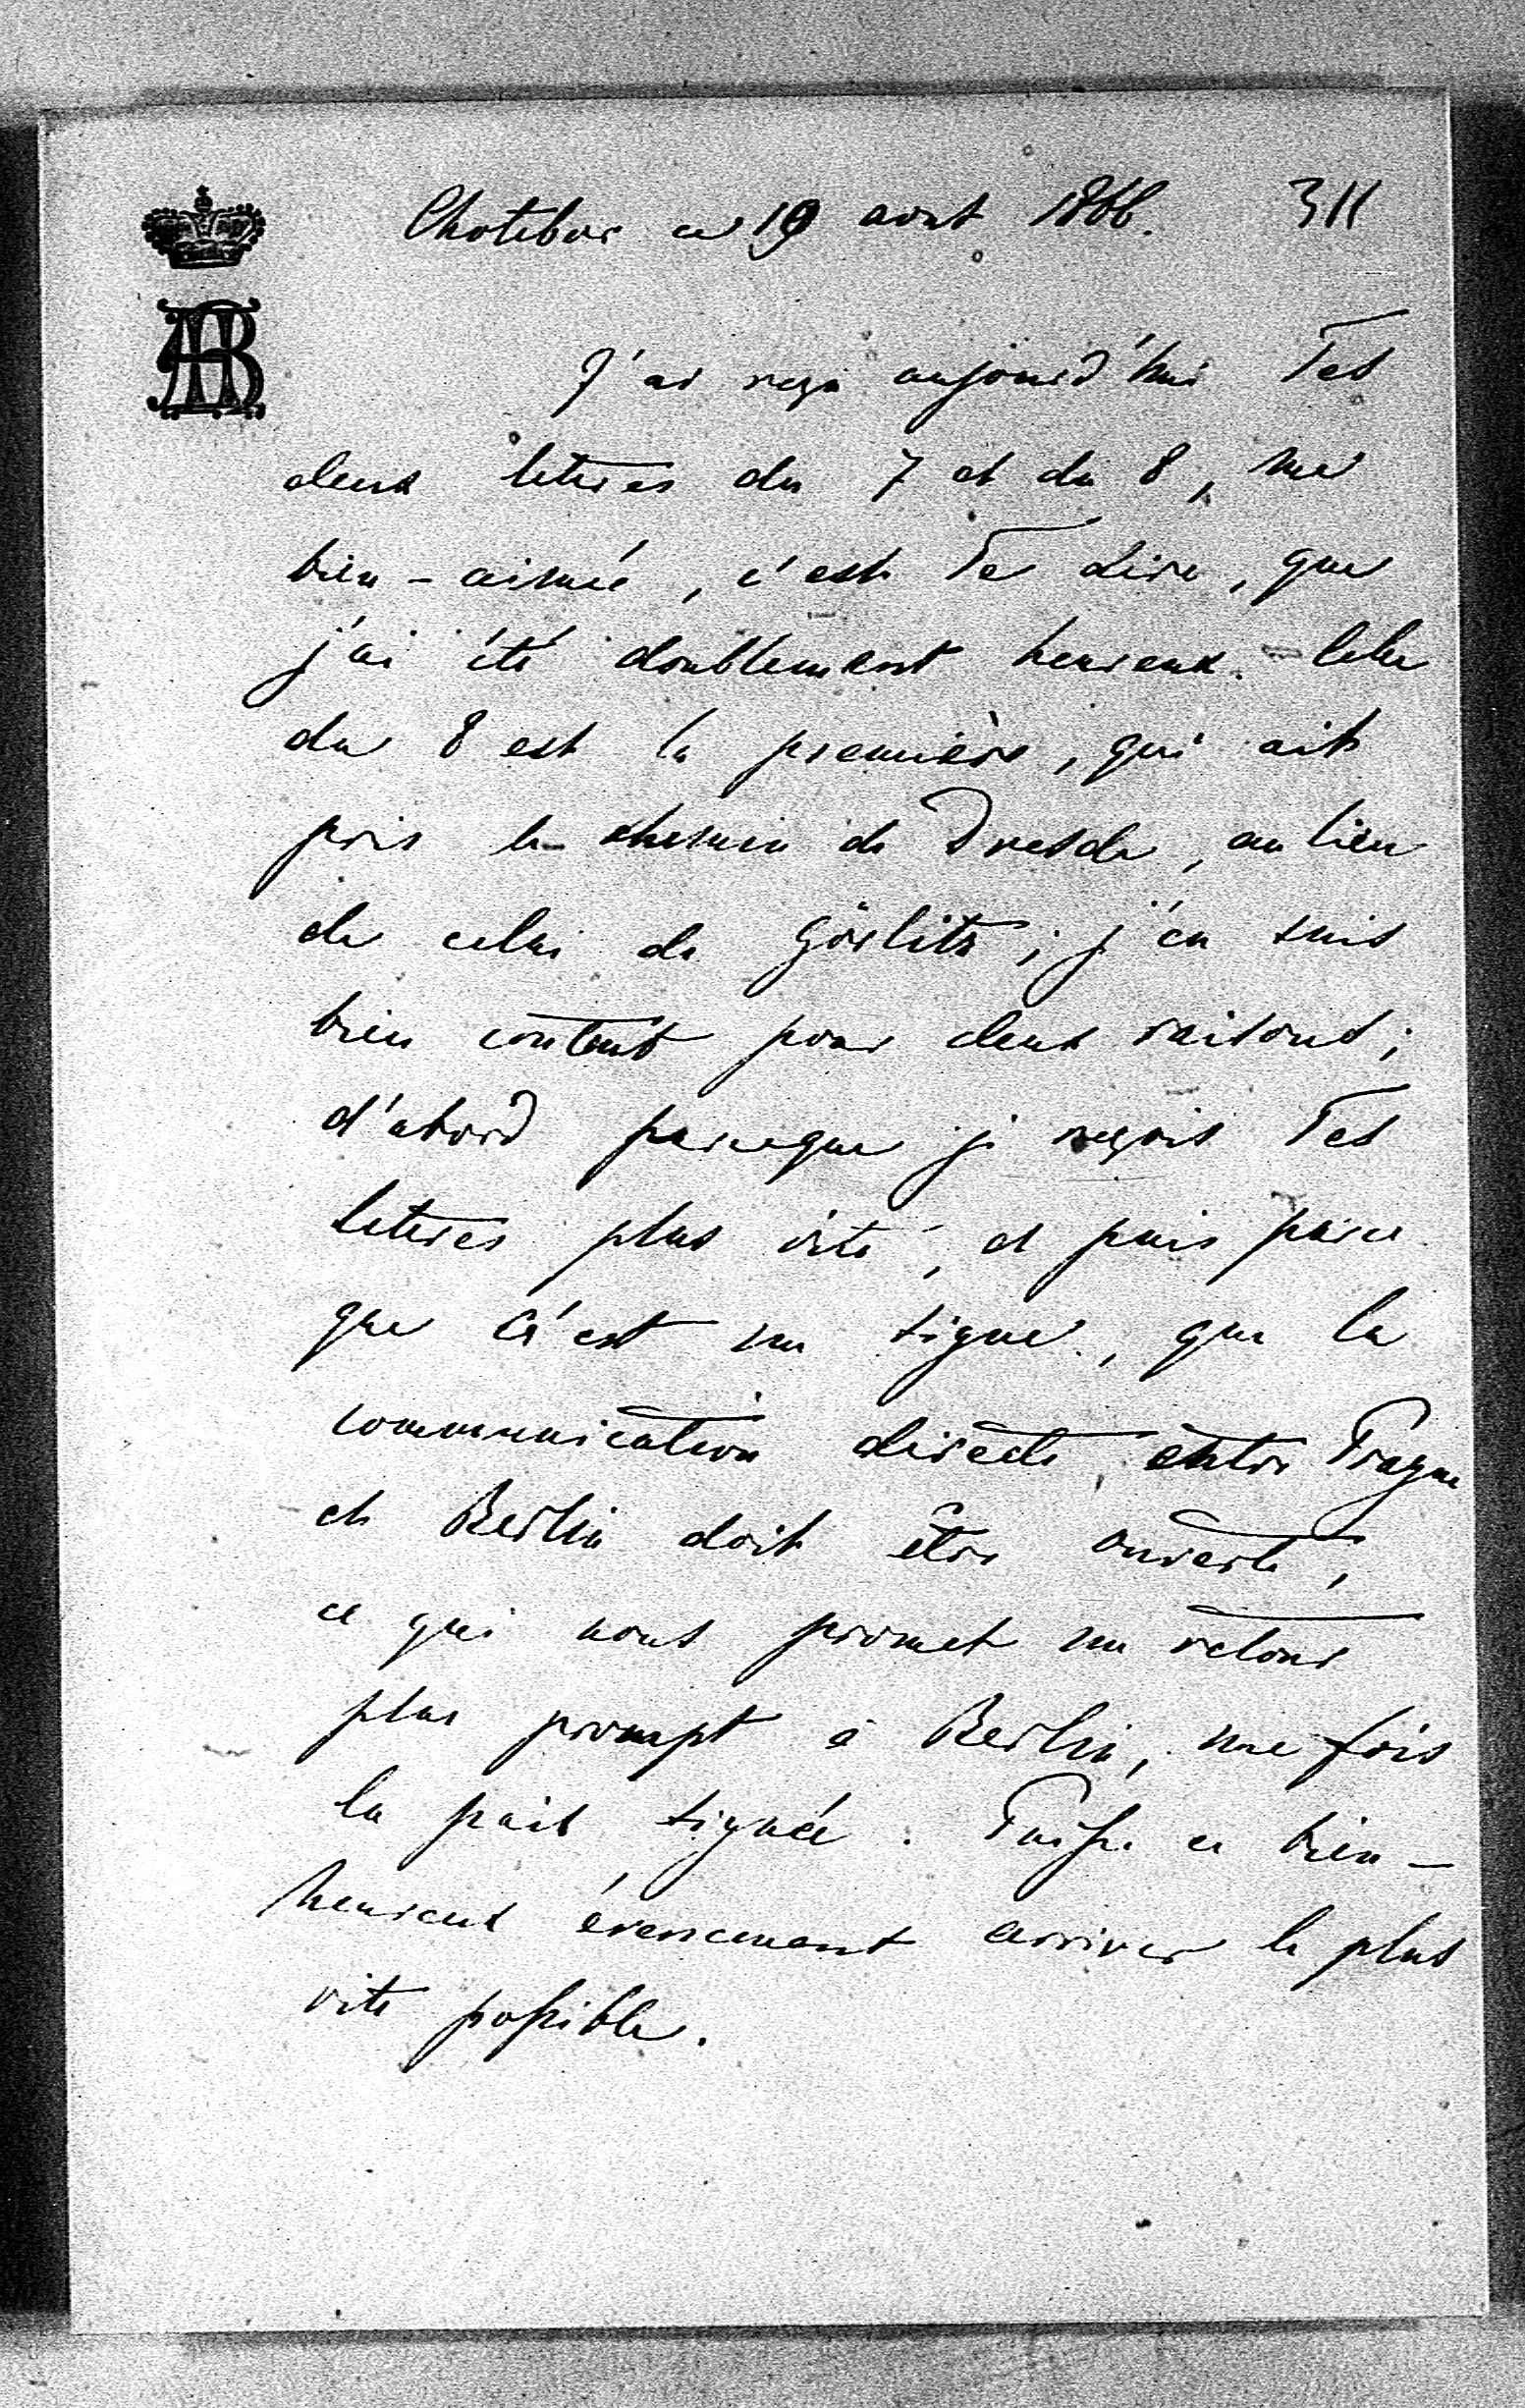 Chotebor ce 19 août 1866. 311
AB
J'ai reçu aujourd'hui Tes
deux lettres du 7 et du 8, ma
bien-aimée, c'est Te dire, que
j'ai été doublement heureux. Celle
du 8 est la première, qui ait
pris le chemin de Dresde, au lieu
de celui de Görlitz; j'en suis
bien content pour deux raisons;
d'abord parceque je reçois Tes
lettres plus vite, et puis parce
que c'est un signe, que la
communication directe entre Prague
et Berlin doit être ouverte,
ce qui nous promet un retour
plus prompt à Berlin, une fois
la paix signée. Puisse ce bien-
heureux évenement arriver le plus
vite possible.